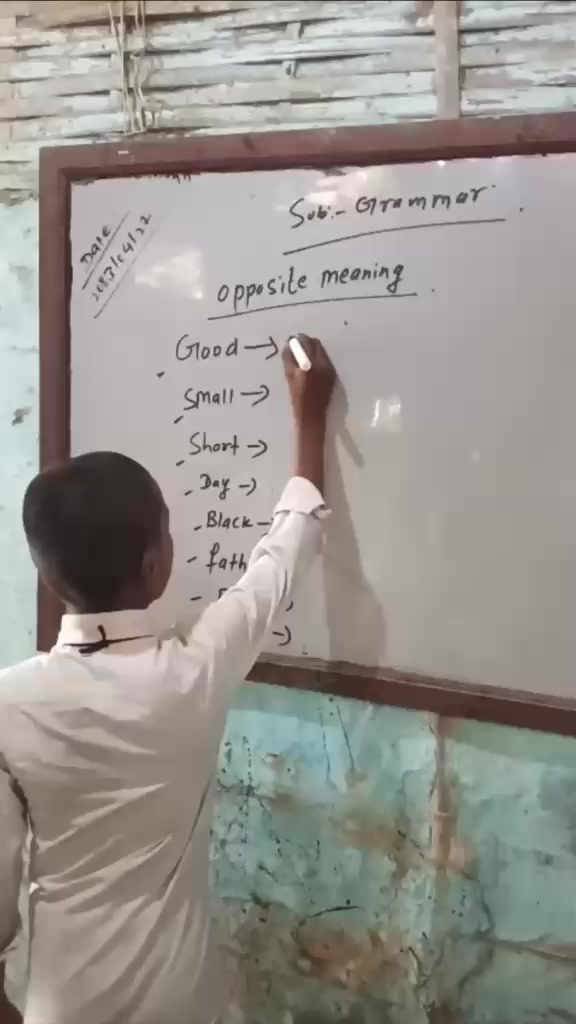 Date
2083/04/22
Sub:- Grammar
opposite meaning
Good →
- Small →
- Short →
- Day →
- Black -
- fath
-
→